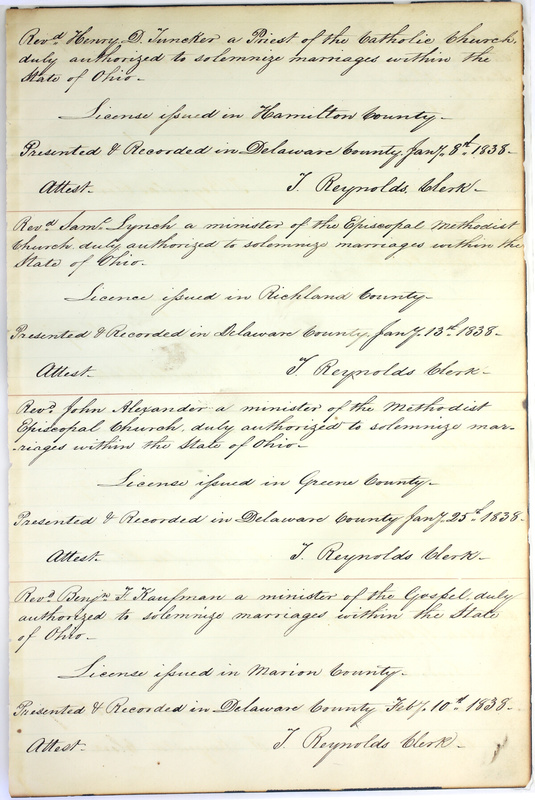 Revd. Henry D. Juncker a Priest of the Catholic Church,
duly authorized to solemnize marriages within the
State of Ohio-
License issued in Hamilton County-
Presented & Recorded in Delaware County, Jany. 8th. 1838-
Attest- T. Reynolds, Clerk-
Revd. Saml. Lynch a minister of the Episcopal Methodist
Church duly authorized to solemnize marriages within the
State of Ohio-
Licence issued in Richland County-
Presented & Recorded in Delaware County, Jany. 13th. 1838-
Attest- T. Reynolds Clerk-
Revd. John Alexander a minister of the Methodist
Episcopal Church, duly authorized to solemnize mar-
-riages within the State of Ohio-
License issued in Greene County-
Presented & Recorded in Delaware County Jany. 25th. 1838-
Attest- T. Reynolds Clerk-
Revd. Benjn. F. Kaufman a minister of the Gospel, duly
authorized to solemnize marriages within the State
of Ohio-
License issued in Marion County-
Presented & Recorded in Delaware County Feby. 10th. 1838-
Attest- T. Reynolds Clerk-